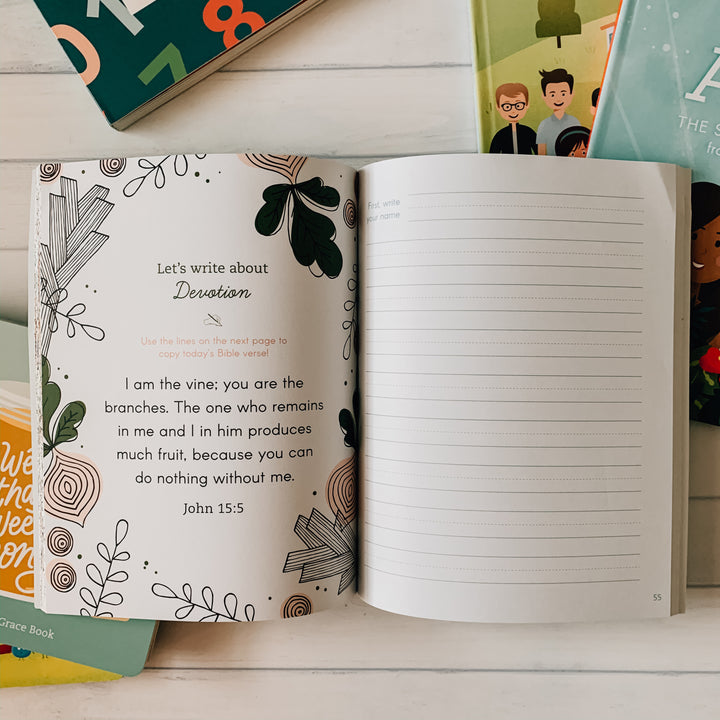 8
7
THE S
fro
Let's write about
Devotion
Use the lines on the next page to
copy today's Bible verse!
I am the vine; you are the
branches. The one who remains
in me and I in him produces
much fruit, because you can
do nothing without me.
John 15:5
First, write
your name
55
We
tha
wee
Grace Book